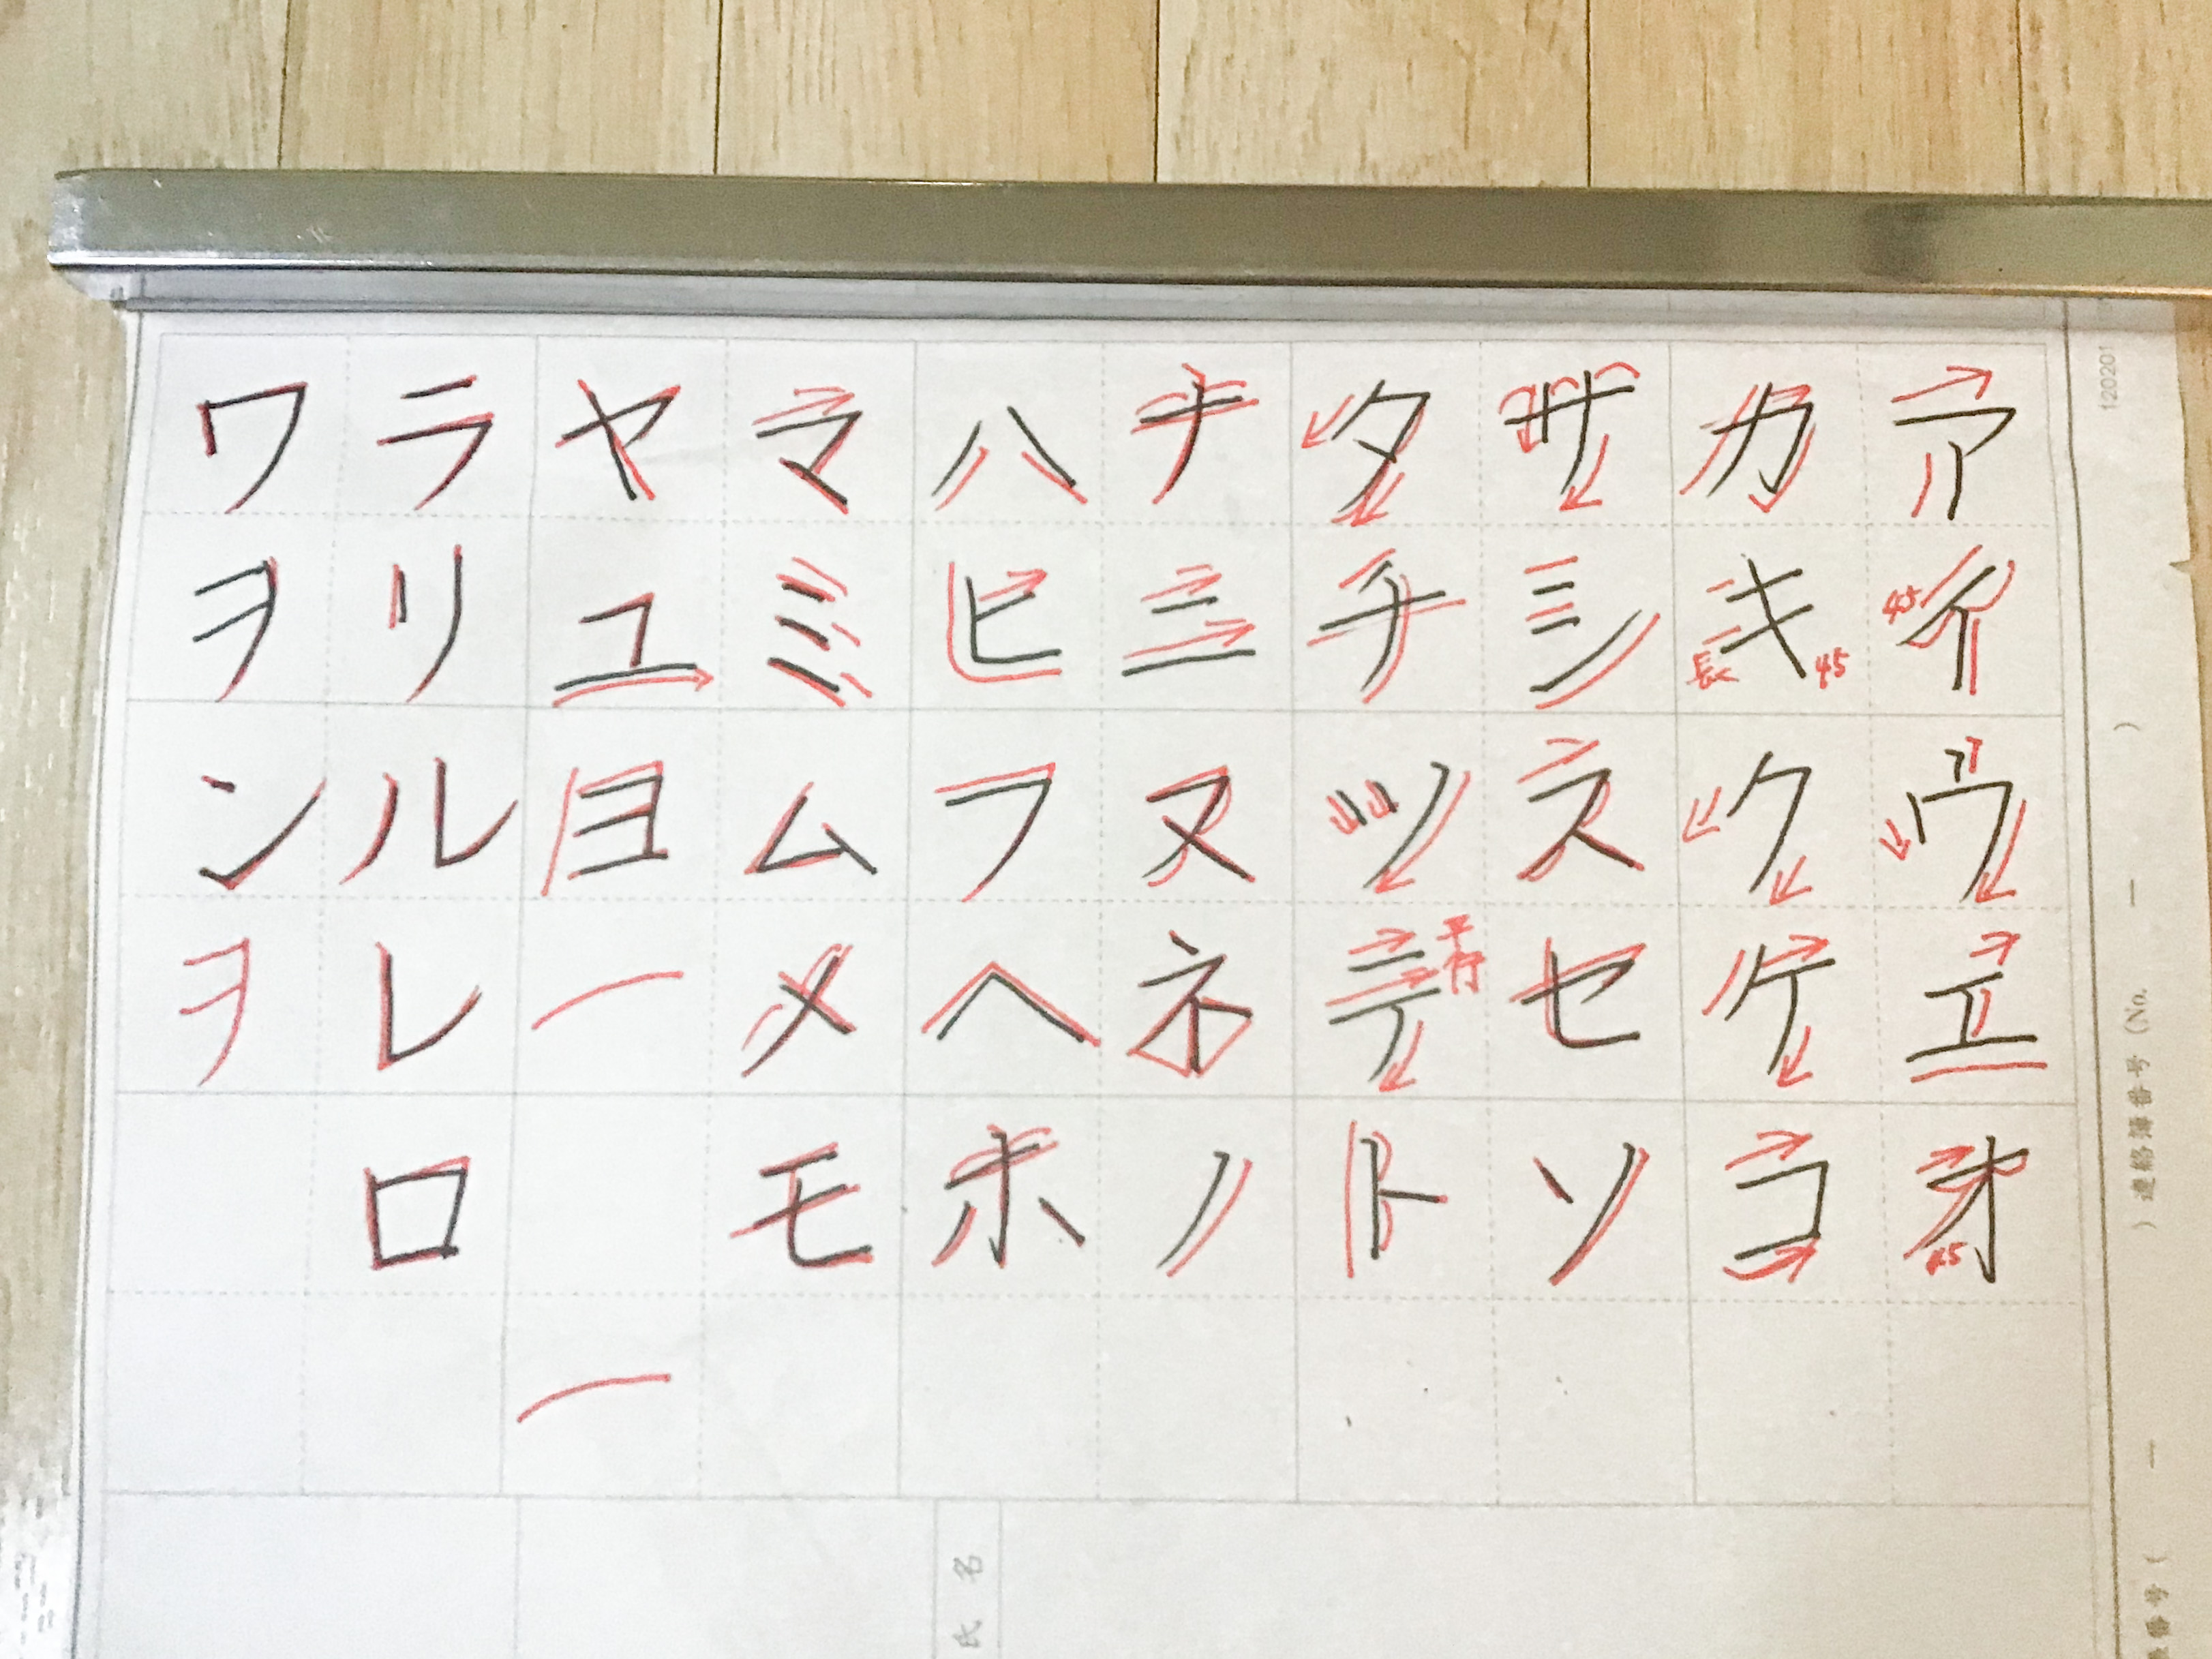 アイウエオ
45
45
カキクケコ
長く
45
サシスセソ
タチツテト
平行
ナニヌネノ
ハヒフヘホ
マミムメモ
ヤユヨ
ラリルレロ
ワヲンヲ
120201
連絡簿番号 (No. — )
番号 ( —
氏名